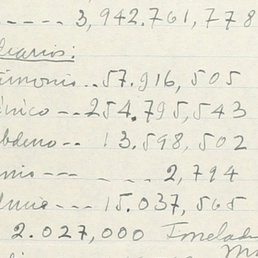 ---- 3,942.761,778
diarios:
timonio -- 57.916,505
énico -- 254.795,543
bdeno -- 13.598,502
nio --- - 2,794
dmio --- 15.037,565
2.027,000 Tonelad